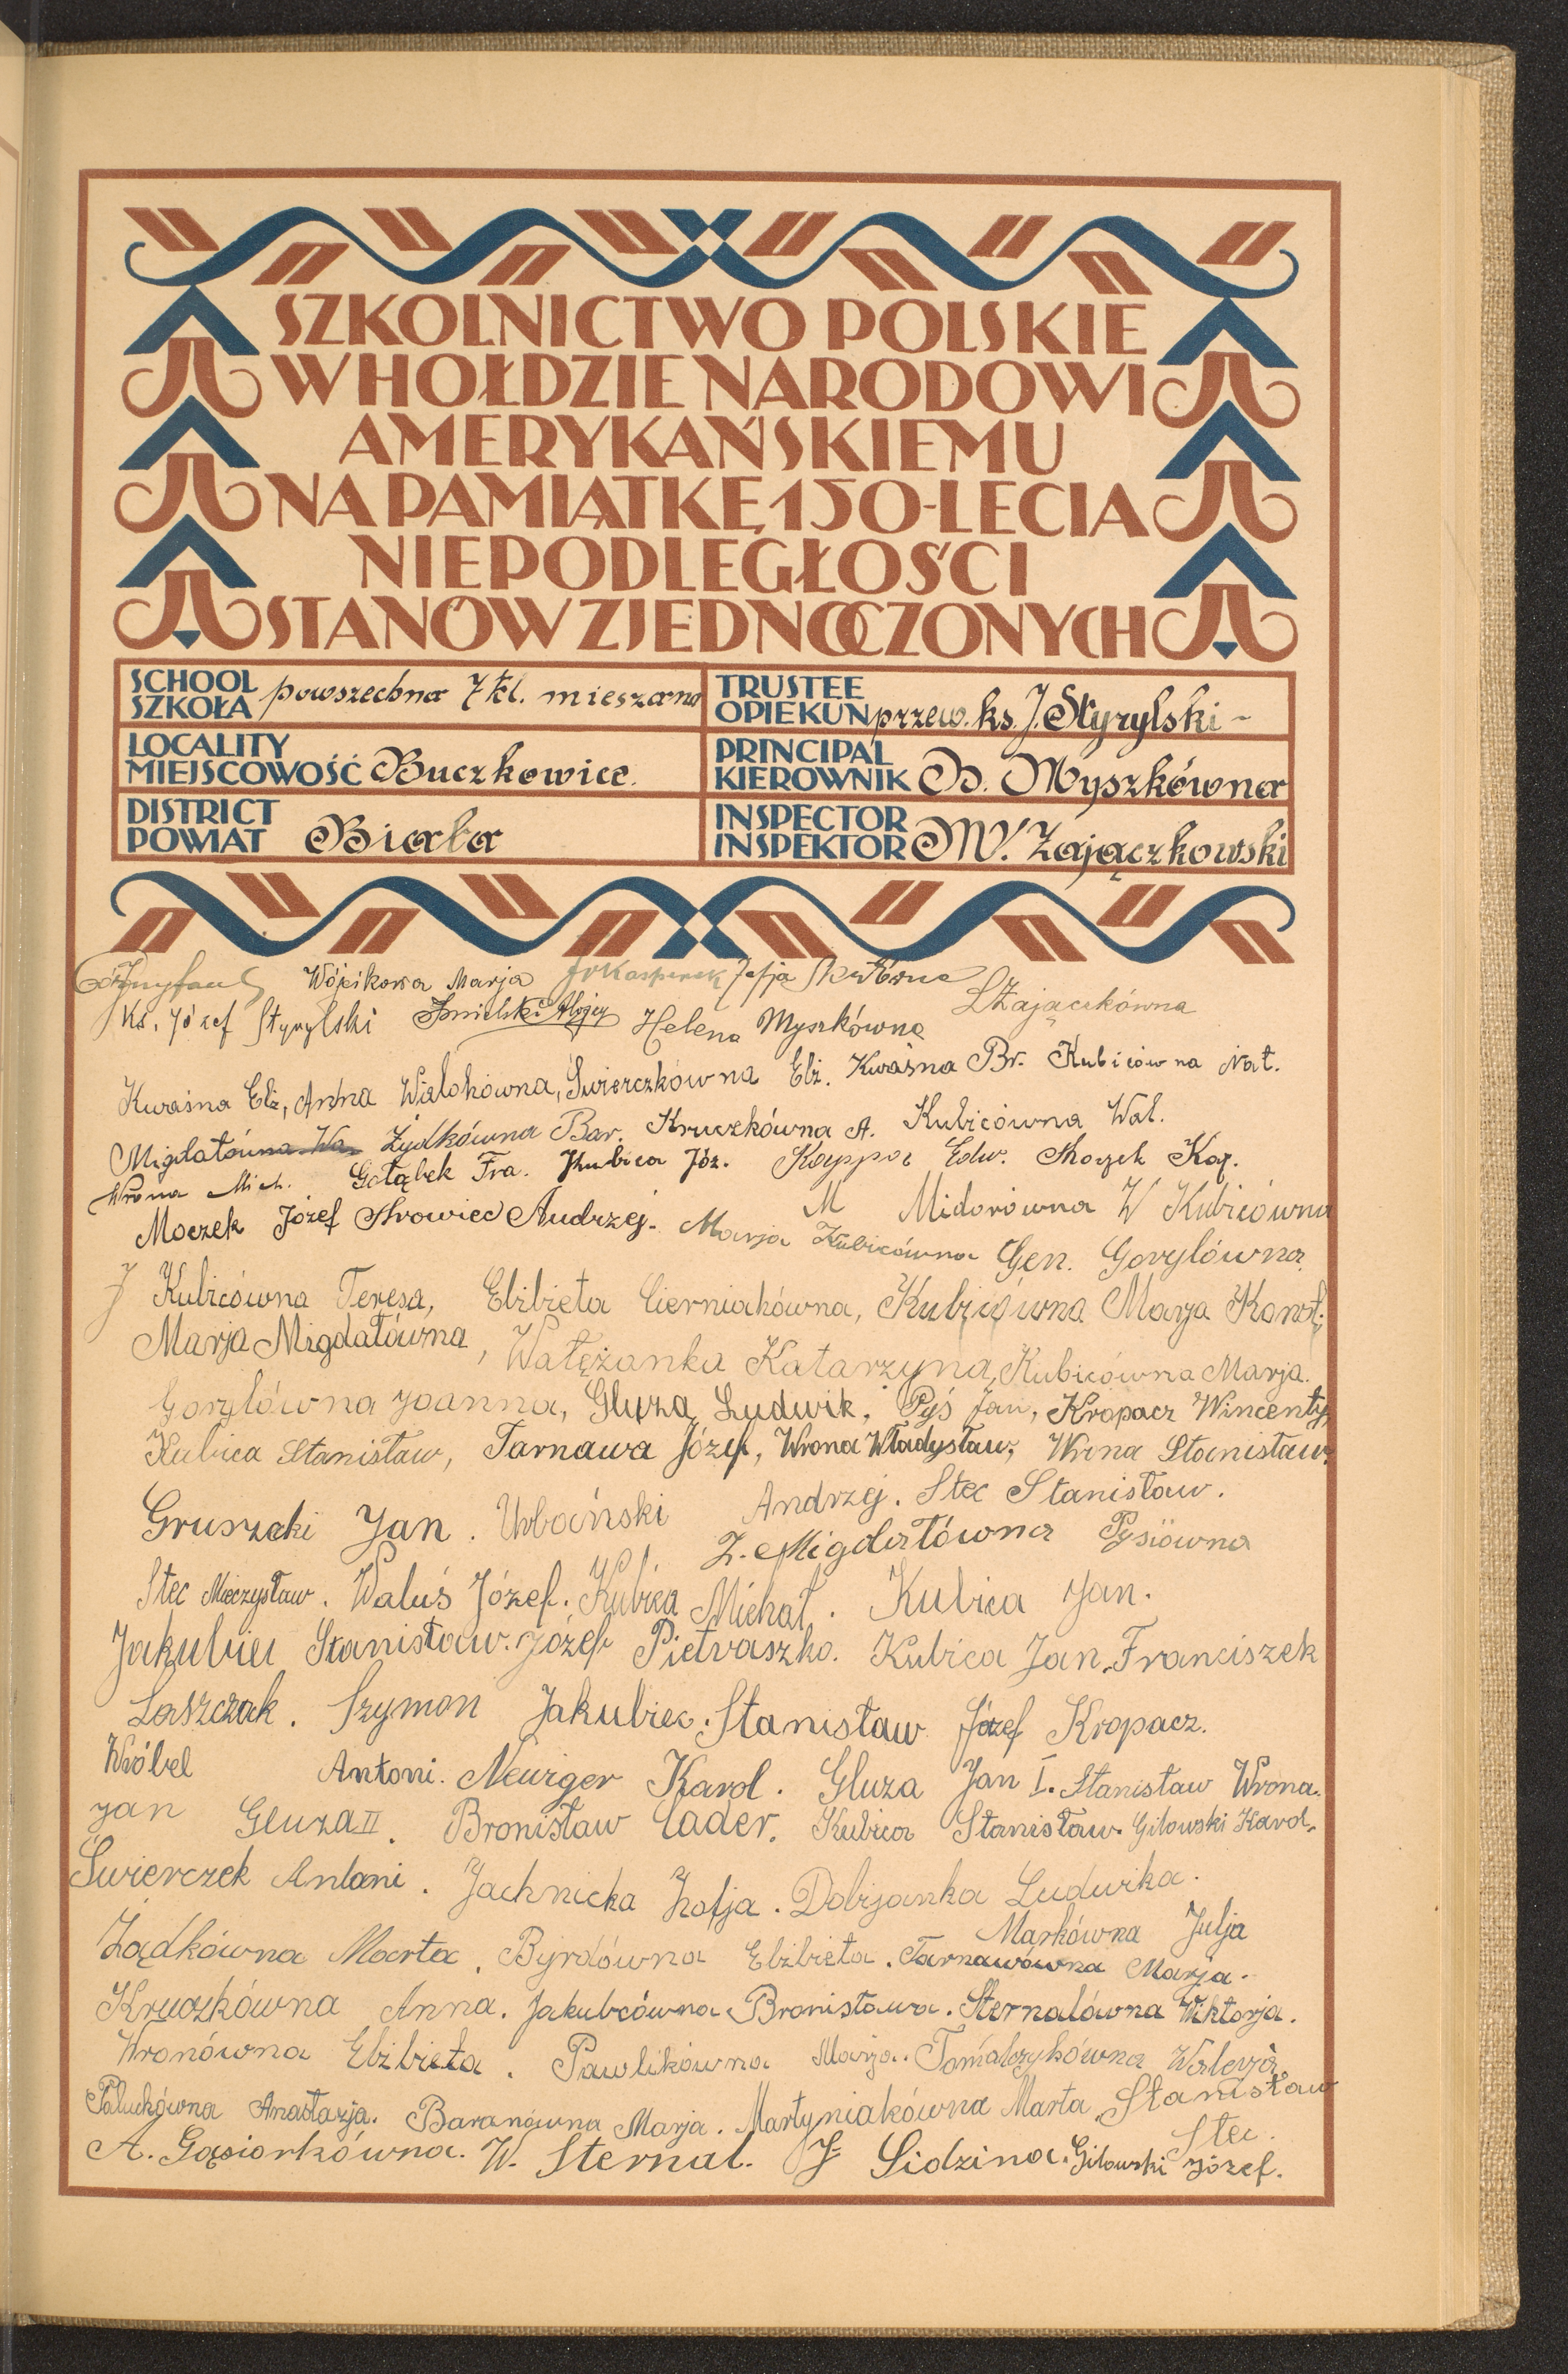 SZKOLNICTWO POLSKIE
W HOŁDZIE NARODOWI
AMERYKAŃSKIEMU
NA PAMIĄTKĘ 150-LECIA
NIEPODLEGŁOŚCI
STANÓW ZJEDNOCZONYCH
SCHOOL
SZKOŁA powszechna 7 kl. mieszana
TRUSTEE
OPIEKUN przew. ks. J. Styrylski -
LOCALITY
MIEJSCOWOŚĆ Buczkowice.
PRINCIPAL
KIEROWNIK B. Myszkówna
DISTRICT
POWIAT Biała
INSPECTOR
INSPEKTOR W. Zajączkowski
Wójcikowa Marja Zofja
Ks. Józef Styrylski Helena Myszkówna Zajączkówna
Kwaśna Elż, Anna Wialohówna, Świerczkówna Elż. Kwaśna Br. Kubicówna Nat.
Migdałówna Wa Żydkówna Bar. Kruczkówna A. Kubicówna Wal.
Wrona Mich. Gołąbek Fra. Kubica Józ. Edw. Kaz.
Moczek Józef Andrzej. M Midorówna W Kubicówna
Marja Kubicówna Gen. Gorylówna
J Kubicówna Teresa, Elżbieta Cierniakówna, Kubicówna Marja Karol;
Marja Migdałówna, Wałężanka Katarzyna, Kubicówna Marja.
Gorylówna Joanna, Gluza Ludwik, Pyś Jan, Kropacz Wincenty,
Kubica Stanisław, Tarnawa Józef, Wrona Władysław, Wrona Stanisław.
Gruszecki Jan. Urbański Andrzej. Stec Stanisław.
Z. Migdałówna Pysiówna
Stec Mieczysław. Waluś Józef. Kubica Michał. Kubica Jan.
Jakubiec Stanisław. Józef Pietraszko. Kubica Jan. Franciszek
Laszczak. Szymon Jakubiec. Stanisław Józef Kropacz.
Wróbel Antoni. Neuiger Karol. Gluza Jan I. Stanisław Wrona.
Jan Gluza II. Bronisław Cader. Kubica Stanisław. Gilowski Karol.
Świerczek Antoni. Jachnicka Zofja. Dobijanka Ludwika.
Markówna Julja
Żądkówna Marta. Byrdówna Elżbieta. Tarnawówna Marja.
Kruczkówna Anna. Jakubcówna Bronisława. Sternalówna Wiktorja.
Wronówna Elżbieta. Pawlikówna Marja. Tomalczykówna Walerja.
Paluchówna Anastazja. Baranówna Marja. Martyniakówna Marta. Stanisław
Stec.
A. Gąsiorkówna. W. Sternal. J Sidzina. Gilowski Józef.